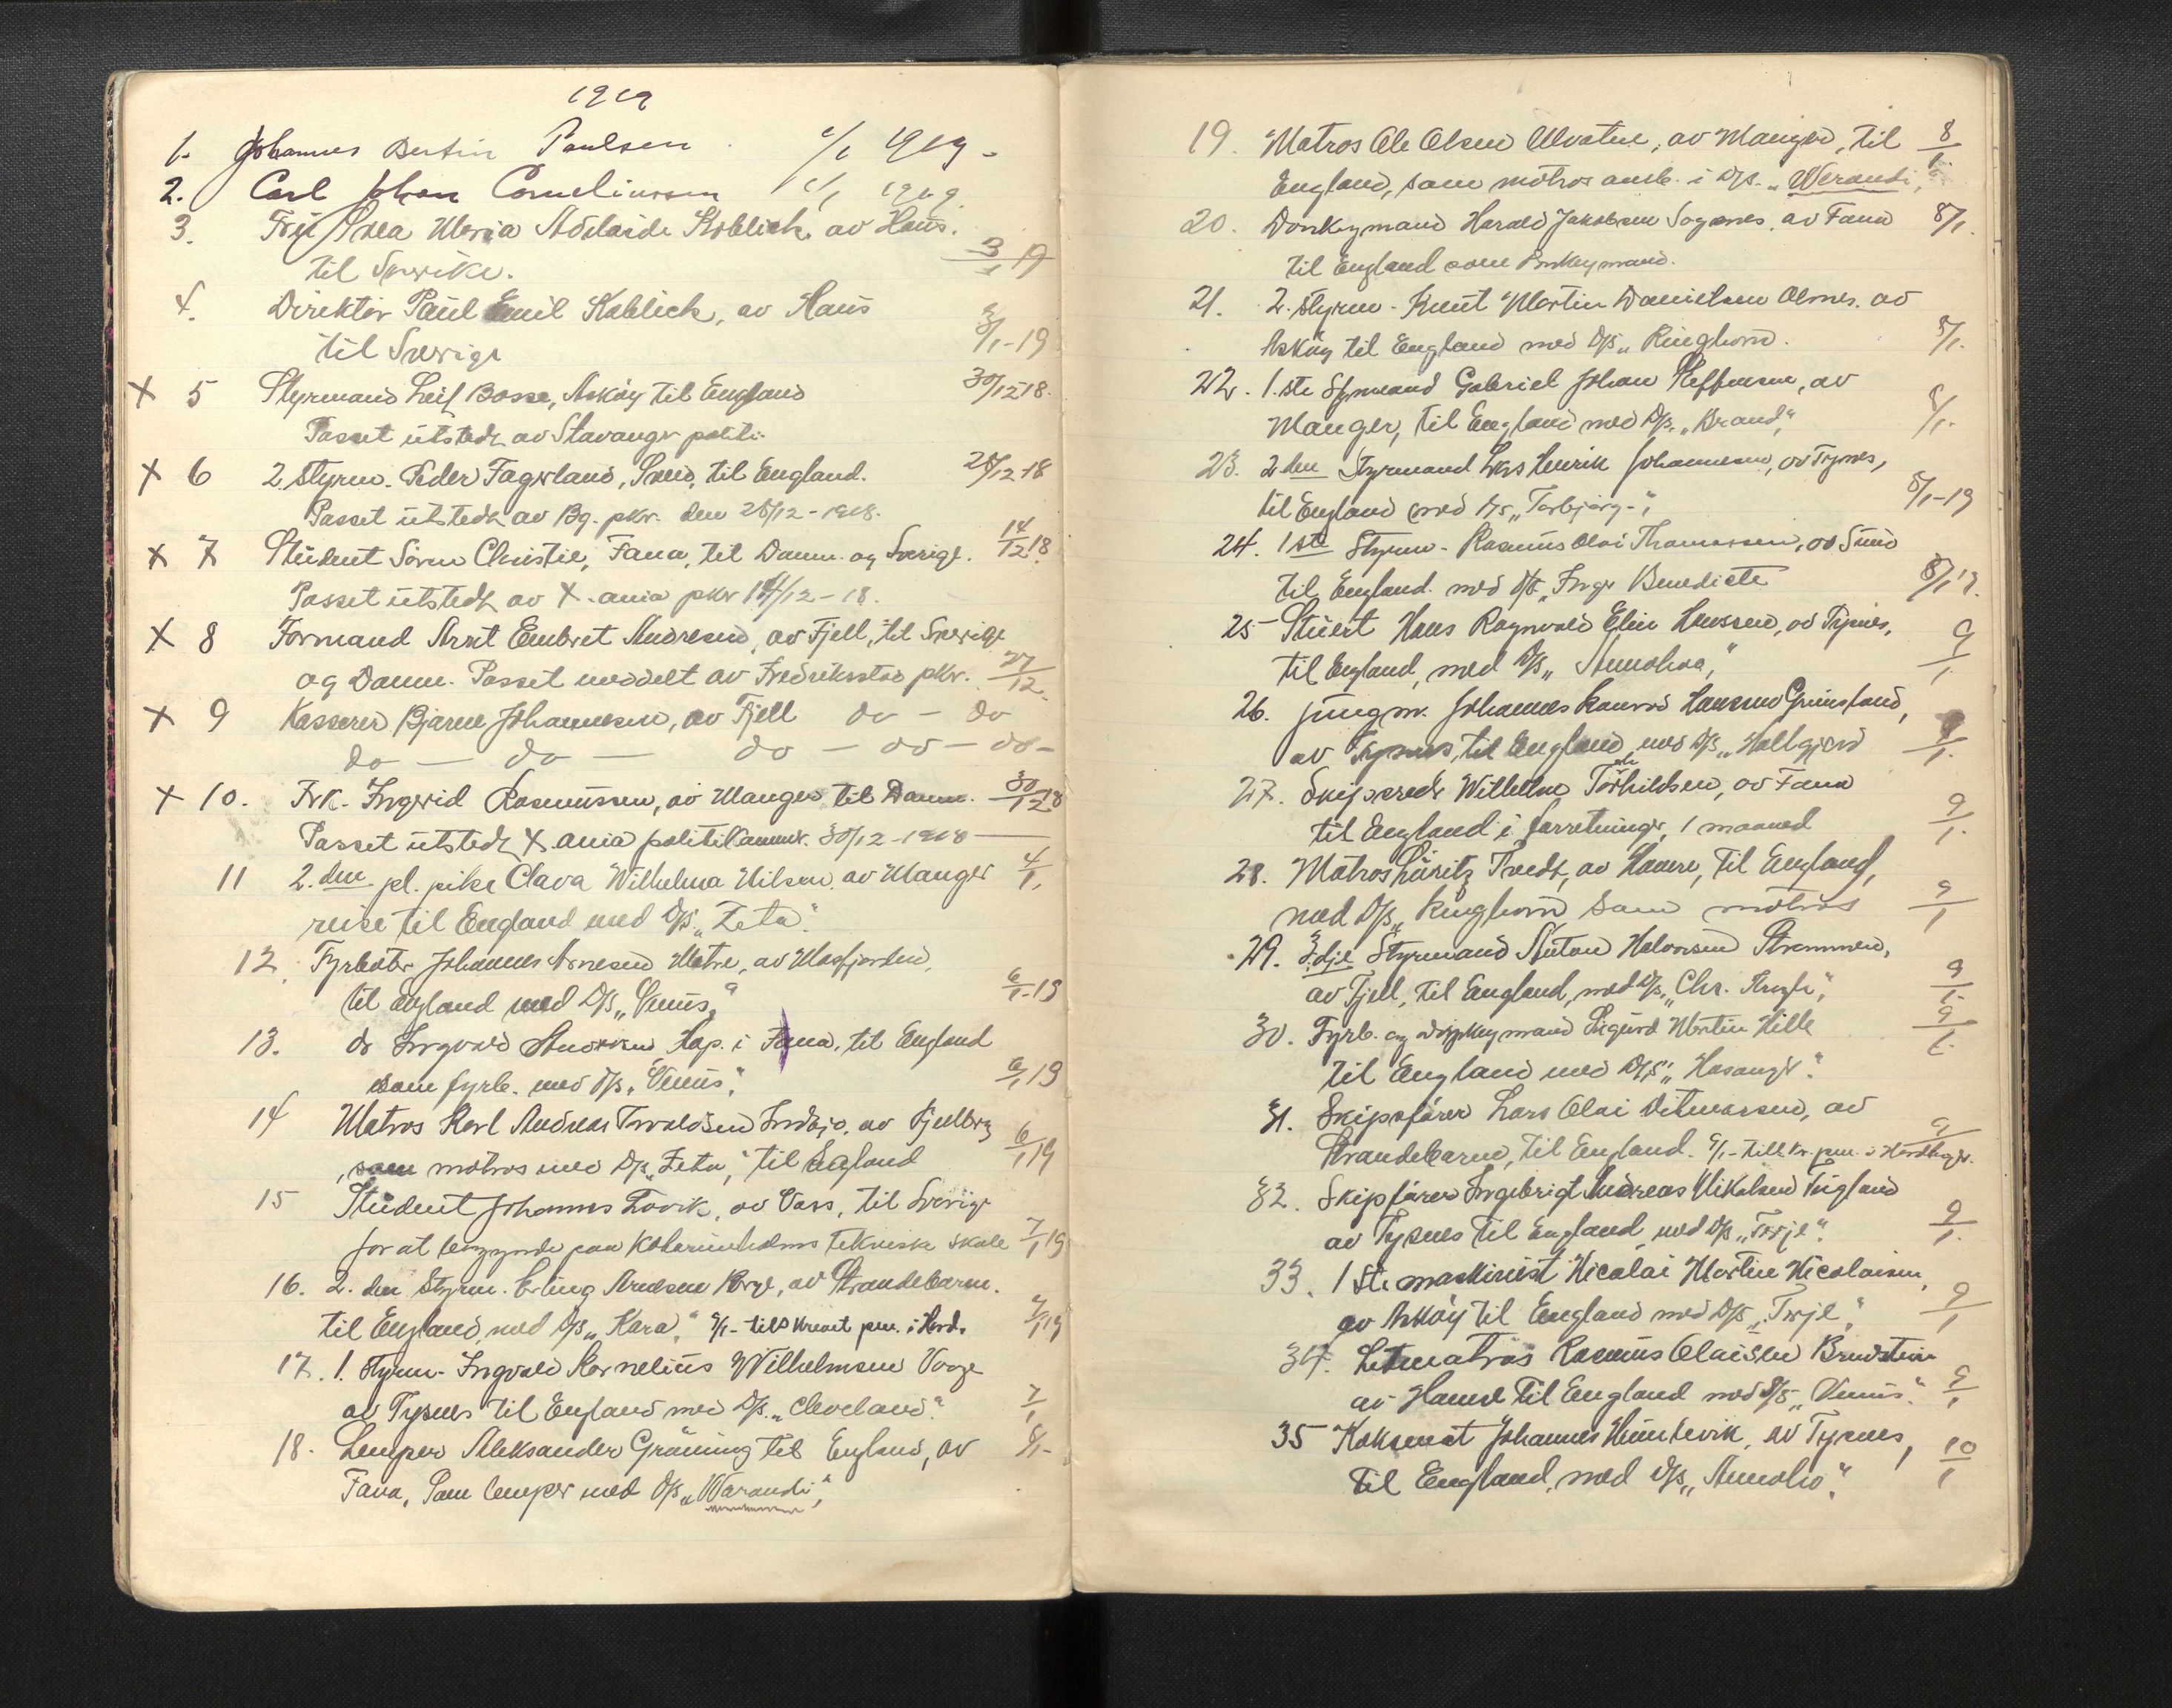 1919
1. Johannes Bertin Paulsen. 2/1 1919 -
2. Carl Johan Corneliussen 2/1 1919.
3. Frú Svea Maria Adelaide Koblick, av Haus.
til Sverike. 3/1 19
4. Direktör Paul Emil Koblick, av Haus
til Sverige 3/1-19
X 5 Styrmand Leif Bosse, Asköy til England 30/12 18.
Passet utstedt av Stavanger politi.
X 6 2. Styrm. Peder Fagerland, Sveio, til England. 28/12 18
Passet utstedt av Bg. pkr. den 28/12-1918.
X 7 Student Sören Christie, Fana, til Danm. og Sverige. 14/12 18.
Passet utstedt av X.ania pkr 14/12-18.
X 8 Formand Arnt Embret Andresen, av Fjell, til Sverige
og Danm. Passet meddelt av Fredriksstad pkr. 27/12.
X 9 Kasserer Bjarne Johannesen, av Fjell do - do
do - do - do - do - do -
X 10. Frk. Ingerid Rasmussen, av Manger til Danm. 30/12 18
Passet utstedt X.ania politikammer. 30/12-1918
11 2.den pl. pike Clara Wilhelma Nilsen, av Manger 4/1.
reise til England med D/S „Zeta".
12. Fyrböter Johannes Arnesen Matre, av Masfjorden,
til england med D/S „Venus" 6/1-19
13. do Ingvald Kap. i Fana, til England
som fyrb. med D/S „Venus". 6/1 19
14 Matros Karl Andreas Tvraldsen av Fjellberg
som matros med D/S „Zeta", til England 6/1 19
15 Student Johannes Lavik, av Voss, til Sverige
for at begynde paa Katerineholms tekniske skole 7/1 19
16. 2.den Styrm. Erling Arnesen av Strandebarm.
til England, med D/S „Kara". 9/1- till i Hard. 7/1 19
17. 1. Styrm. Ingvald Kornelius Wilhelmsen Vaage
av Tysnes til England med D/S „Cleveland". 7/1
18. Lemper Aleksander Gräning til England, av 8/1-
Fana, som lemper med D/S „Warandi".
19. Matros Ole Olsen Alvatne, av Manger, til 8/1.
England, som matros ansb. i D/S. „Werandi".
20. Donkeymand Harald Jakobsen Sognnes, av Fana 8/1.
til England som Donkeymand.
21. 2. styrm. Knut Martin Danielsen Olsnes. av
Asköy til England med D/S „Ringhorn". 8/1.
22. 1.ste Styrmand Gabriel Johan Steffensen, av
Manger, til England med D/S. „Brand". 8/1.
23. 2 den Styrmand Lars Henrik Johannesen, av Tysnes,
til England med D/S „Torbjørg". 8/1-19
24. 1ste Styrm. Rasmus Olai Thomassen, av Sund
til England. med D/S „Inger Benedicte 8/1 19.
25 Stuert Hans Ragnvald Elin Hanssen, av Tysnes,
til England, med D/S „Annoholm" 9/1
26. jungm. Johannes Konrad Hanssen Grimsland,
av Tysnes, til England med D/S „Hallgjerd 9/1.
27. Skipsreder Wilhelm Torkildsen, av Fana
til England i forretninger, 1 maaned 9/1.
28. Matros Lauritz Tvedt, av Hamre, til England,
med D/S „Ringhorn som matros 9/1
29. 3.dje Styrmand Anton Halvorsen Strømmen,
av Fjell, til England, med D/S, „Chr. Krogh". 9/1.
30. Fyrb. og donkeymand Sigurd Martin Hille 9/1.
til England med D/S „Hasanger".
31. Skipsfører Lars Olai Ditmarsen, av 9/1
Strandebarm, til England. 9/1- till. i Hardanger.
32. Skipsfører Ingebrigt Andreas Mikalsen Tvigland
av Tysnes til England, med D/S „Terje". 9/1.
33. 1 ste maskinist Nicolai Martin Nicolaisen,
av Asköy til England med D/S „Terje". 9/1
34. Letmatros Rasmus Olaisen
av Hamre til England med D/S „Venus". 9/1
35 Koksmat Johannes Heimlevik, av Tysnes, 10/1
til England, med D/S „Annoho".